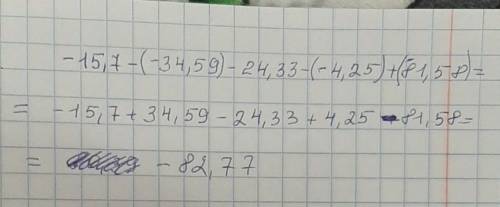 -15,7-(-34,59)-24,33-(-4,25)+(-81,58)=
= -15,7+34,59-24,33+4,25-81,58=
= -82,77